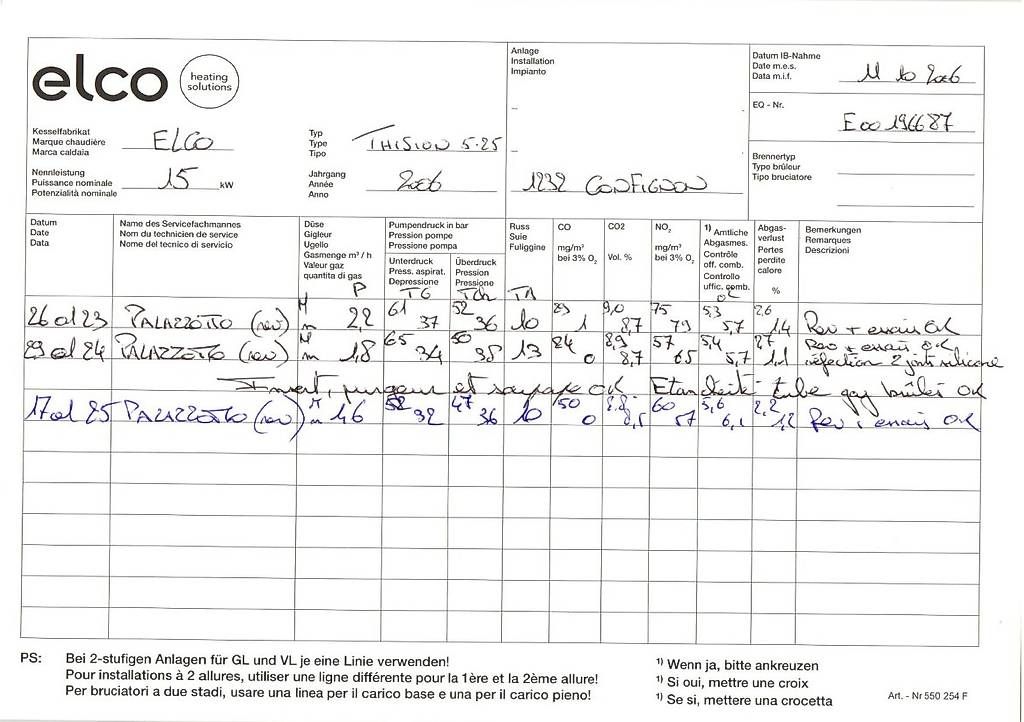 elco heating solutions
Anlage
Installation
Impianto
Datum IB-Nahme
Date m.e.s.
Data m.i.f.
11 10 2006
EQ - Nr.
E00 196687
Kesselfabrikat
Marque chaudière
Marca caldaia
ELCO
Typ
Type
Tipo
THISION 5.25
Nennleistung
Puissance nominale
Potenzialità nominale
15 kW
Jahrgang
Année
Anno
2006
1232 CONFIGNON
Brennertyp
Type brûleur
Tipo bruciatore
Datum
Date
Data
Name des Servicefachmannes
Nom du technicien de service
Nome del tecnico di servizio
Düse
Gigleur
Ugello
Gasmenge m³ / h
Valeur gaz
quantita di gas
P
Pumpendruck in bar
Pression pompe
Pressione pompa
Unterdruck
Press. aspirat.
Depressione
TG
Überdruck
Pression
Pressione
Russ
Suie
Fuliggine
TA
CO
mg/m³
bei 3% O₂
CO2
Vol. %
NO₂
mg/m³
bei 3% O₂
1) Amtliche
Abgasmes.
Contrôle
off. comb.
Controllo
uffic. comb.
Abgas-
verlust
Pertes
perdite
calore
%
Bemerkungen
Remarques
Descrizioni
M 61 52 29 9,0 75 5,3 2,6
26 01 23 PALAZZOTTO (rev) m 2,2 37 36 10 1 8,7 79 5,7 1,4 Rev + essais OK
M 65 50 24 8,9 57 5,4 2,7 Rev + essais OK
29 01 24 PALAZZOTTO (rev) m 1,8 34 38 13 0 8,7 65 5,7 1,1 réfection 2 joints silicone
purgeur et soupape OK Etancheité tube gaz brûlés OK
M 52 47 50 8.8 60 5,6 2,2
17 01 25 PALAZZOTTO (rev) m 1,6 32 36 10 0 8,5 57 6,1 1,2 Rev + essais OK
PS: Bei 2-stufigen Anlagen für GL und VL je eine Linie verwenden!
Pour installations à 2 allures, utiliser une ligne différente pour la 1ère et la 2ème allure!
Per bruciatori a due stadi, usare una linea per il carico base e una per il carico pieno!
1) Wenn ja, bitte ankreuzen
1) Si oui, mettre une croix
1) Se si, mettere una crocetta
Art. - Nr 550 254 F